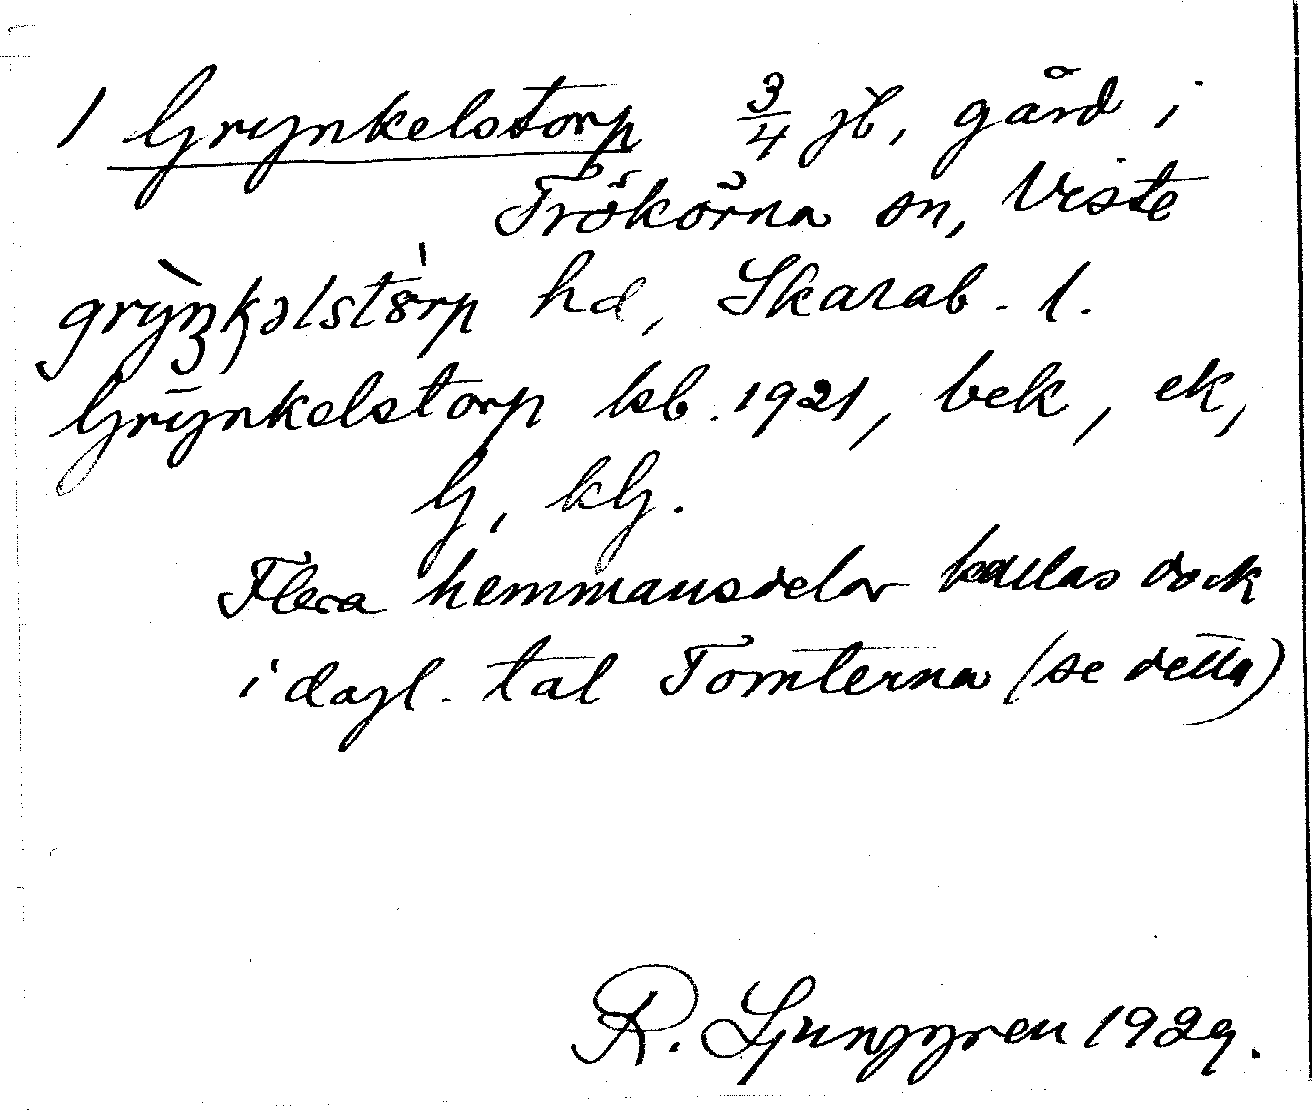 1 Grynkelstorp 3/4 jb, gård i
Trökörna sn, Viste
grỳŋkəlstòrp hd, Skarab. l.
Grynkelstorp kb. 1921, bek, ek,
G, kG.
Flera hemmansdelar kallas dock
i dagl. tal Tomterna (se detta)
R. Ljunggren 1929.